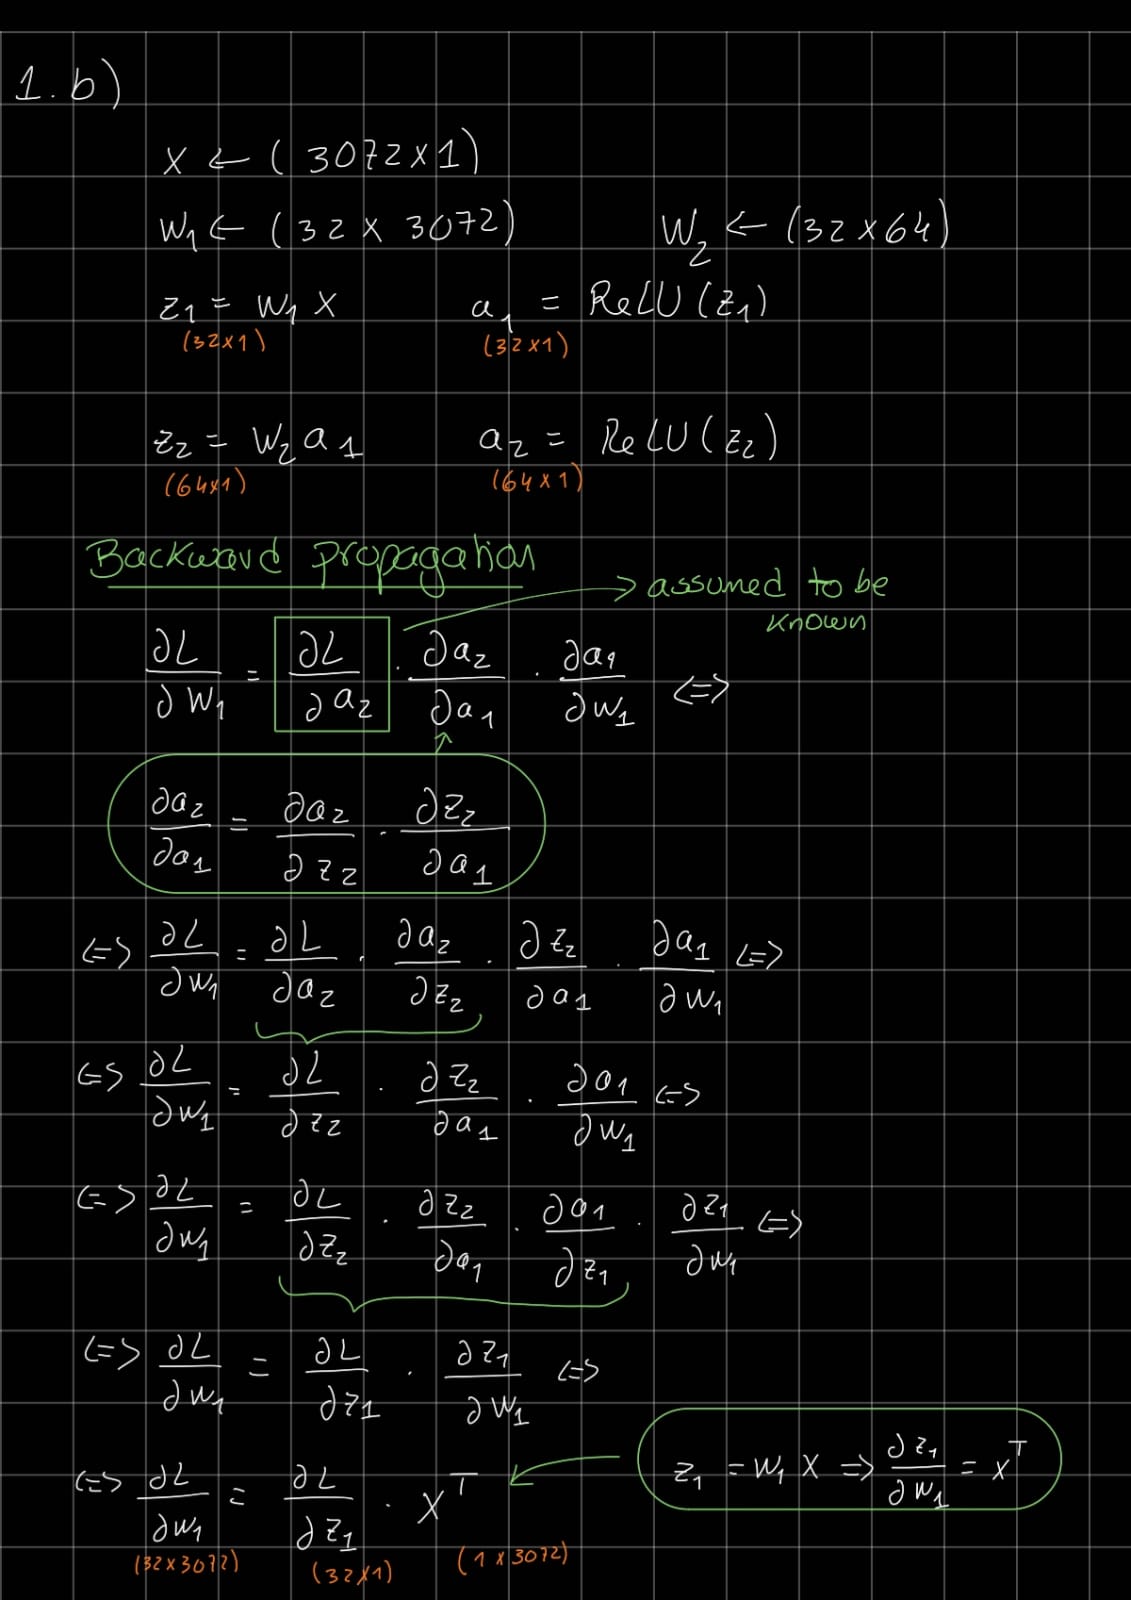 1. b)
x ← (3072x1)
W₁ ← (32 x 3072) W₂ ← (32x64)
z₁ = W₁ x a₁ = ReLU(z₁)
(32x1) (32x1)
z₂ = W₂ a₁ a₂ = ReLU(z₂)
(64x1) (64x1)
Backward propagation
→ assumed to be
known
∂L/∂W₁ = ∂L/∂a₂ · ∂a₂/∂a₁ · ∂a₁/∂W₁ <=>
∂a₂/∂a₁ = ∂a₂/∂z₂ · ∂z₂/∂a₁
<=> ∂L/∂W₁ = ∂L/∂a₂ · ∂a₂/∂z₂ · ∂z₂/∂a₁ · ∂a₁/∂W₁ <=>
<=> ∂L/∂W₁ = ∂L/∂z₂ · ∂z₂/∂a₁ · ∂a₁/∂W₁ <=>
<=> ∂L/∂W₁ = ∂L/∂z₂ · ∂z₂/∂a₁ · ∂a₁/∂z₁ · ∂z₁/∂W₁ <=>
<=> ∂L/∂W₁ = ∂L/∂z₁ · ∂z₁/∂W₁ <=>
<=> ∂L/∂W₁ = ∂L/∂z₁ · xᵀ ← z₁ = W₁ x => ∂z₁/∂W₁ = xᵀ
(32x3072) (32x1) (1x3072)